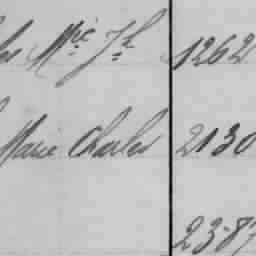 Mie Jh 1262
Marie Charles 2130
2387